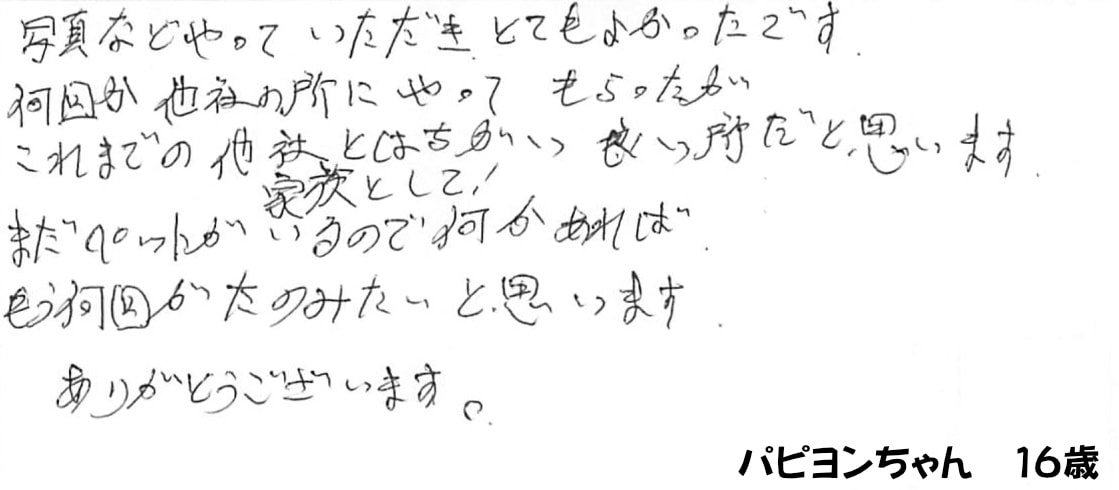 写真などやって いただき とてもよかったです.
何回か他社の所にやって もらったが
これまでの他社とはちがいっ 良いっ所だと思います.
家族として!
まだペットがいるので何かあれば.
もう何回か たのみたいと思います.
ありがとうございます。
パピヨンちゃん 16歳